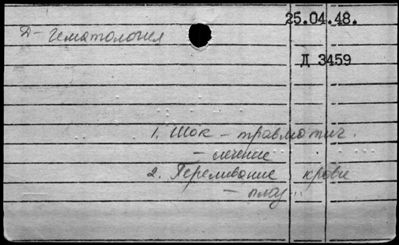 25.04.48.
Д - Гематология
Д 3459
1. Шок - травматич.
- лечение
2. Переливание крови
- плаз...